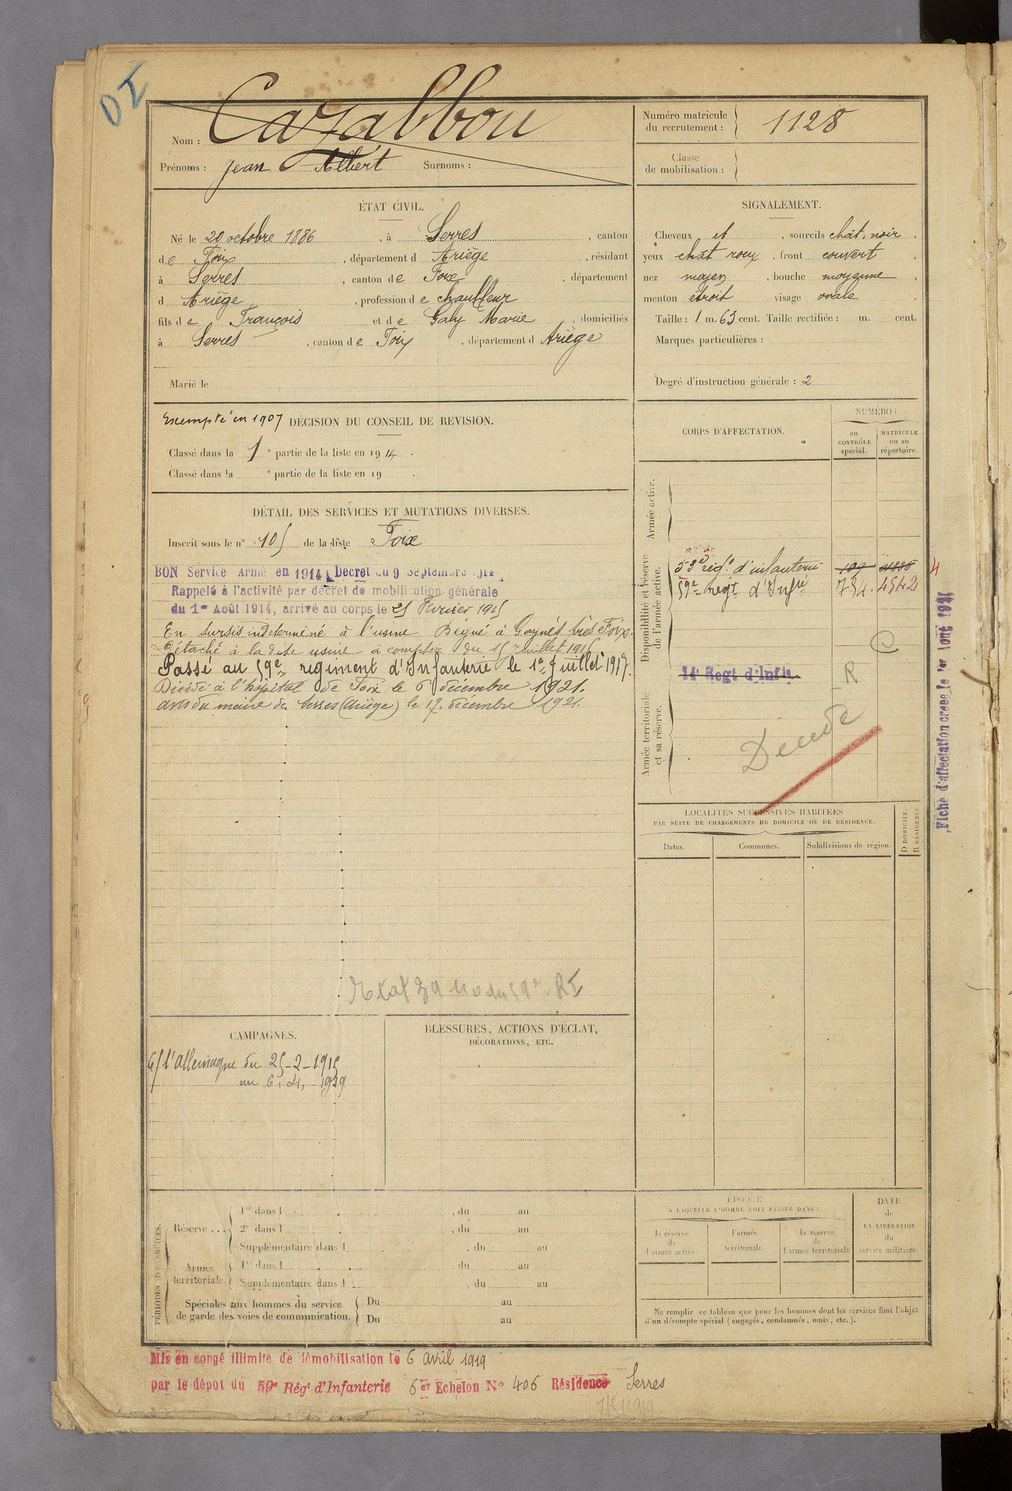 DI
Nom : Cazabbou
Prénoms : Jean Albert Surnoms :
Numéro matricule du recrutement : 1128
Classe de mobilisation :
ÉTAT CIVIL.
Né le 28 octobre 1886, à Serres, canton
de Foix, département d Ariège, résidant
à Serres, canton de Foix, département
d Ariège, profession de chauffeur
fils de François et de Galy Marie, domiciliés
à Serres, canton de Foix, département d Ariège
Marié le
SIGNALEMENT.
Cheveux et, sourcils chat. noir.
yeux chat roux, front couvert
nez moyen, bouche moyenne
menton étroit visage ovale
Taille : 1 m. 63 cent. Taille rectifiée : m. cent.
Marques particulières :
Degré d'instruction générale : 2
Exempté en 1907 DÉCISION DU CONSEIL DE REVISION.
Classé dans la 1e partie de la liste en 1914.
Classé dans la e partie de la liste en 19 .
DÉTAIL DES SERVICES ET MUTATIONS DIVERSES.
Inscrit sous le n° 105 de la liste Foix
BON Service Armé en 1914 Décret du 9 Septembre 1914
Rappelé à l'activité par décret de mobilisation générale
du 1er Août 1914, arrivé au corps le 25 Février 1915
En sursis indéterminé à l'usine Bégué à près Foix.
Détaché à la dite usine à compter du 15 juillet 1915
Passé au 59e régiment d'Infanterie le 1er Juillet 1917.
Décédé à l'hôpital de Foix le 6 décembre 1921.
avis du maire de Serres (Ariège) le 17 décembre 1921.
59e RI
CORPS D'AFFECTATION.
NUMÉROS
au CONTRÔLE spécial.
MATRICULE ou au répertoire.
Armée active.
Disponibilité et réserve de l'armée active.
53e rég. d'infanterie
59e Régt d'Infie 754. 4542
Armée territoriale et sa réserve.
14e Régt d'Infie
R C
Décédé
Fiche d'affectation créée le 1er Août 1921
LOCALITÉS SUCCESSIVES HABITÉES
PAR SUITE DE CHANGEMENTS DE DOMICILE OU DE RÉSIDENCE.
Dates. Communes. Subdivisions de région. D DOMICILE. R RÉSIDENCE
CAMPAGNES.
C/ l'Allemagne du 25-2-1915
au 6. 4. 1919
BLESSURES, ACTIONS D'ÉCLAT,
DÉCORATIONS, ETC.
PÉRIODES D'EXERCICES.
Réserve... 1re dans l , du au
2e dans l , du au
Supplémentaire dans l , du au
Armée territoriale. 1re dans l , du au
Supplémentaire dans l , du au
Spéciales aux hommes du service de garde des voies de communication. Du au
Du au
ÉPOQUE
À LAQUELLE L'HOMME DOIT PASSER DANS :
la réserve de l'armée active
l'armée territoriale
la réserve de l'armée territoriale
DATE de LA LIBÉRATION du service militaire.
Ne remplir ce tableau que pour les hommes dont les services font l'objet
d'un décompte spécial (engagés, condamnés, omis, etc.).
Mis en congé illimité de démobilisation le 6 avril 1919
par le dépôt du 59e Régt d'Infanterie 6er Echelon N° 406 Résidence Serres